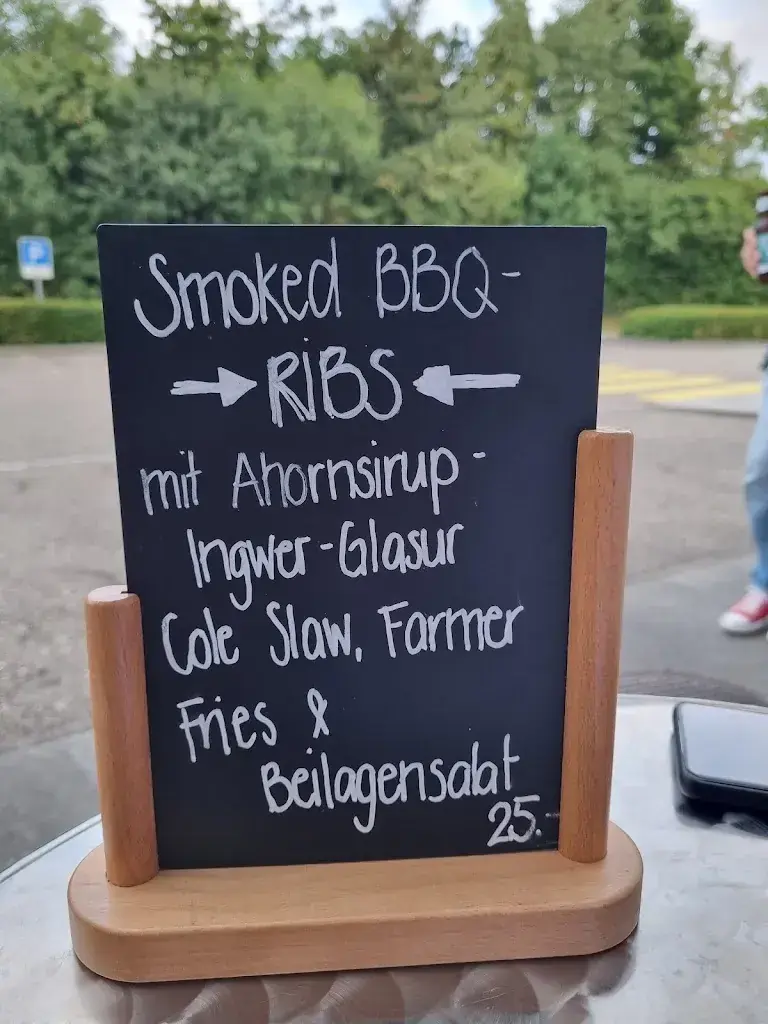 Smoked BBQ-
→ RIBS ←
mit Ahornsirup-
Ingwer-Glasur
Cole Slaw, Farmer
Fries &
Beilagensalat
25.-
P